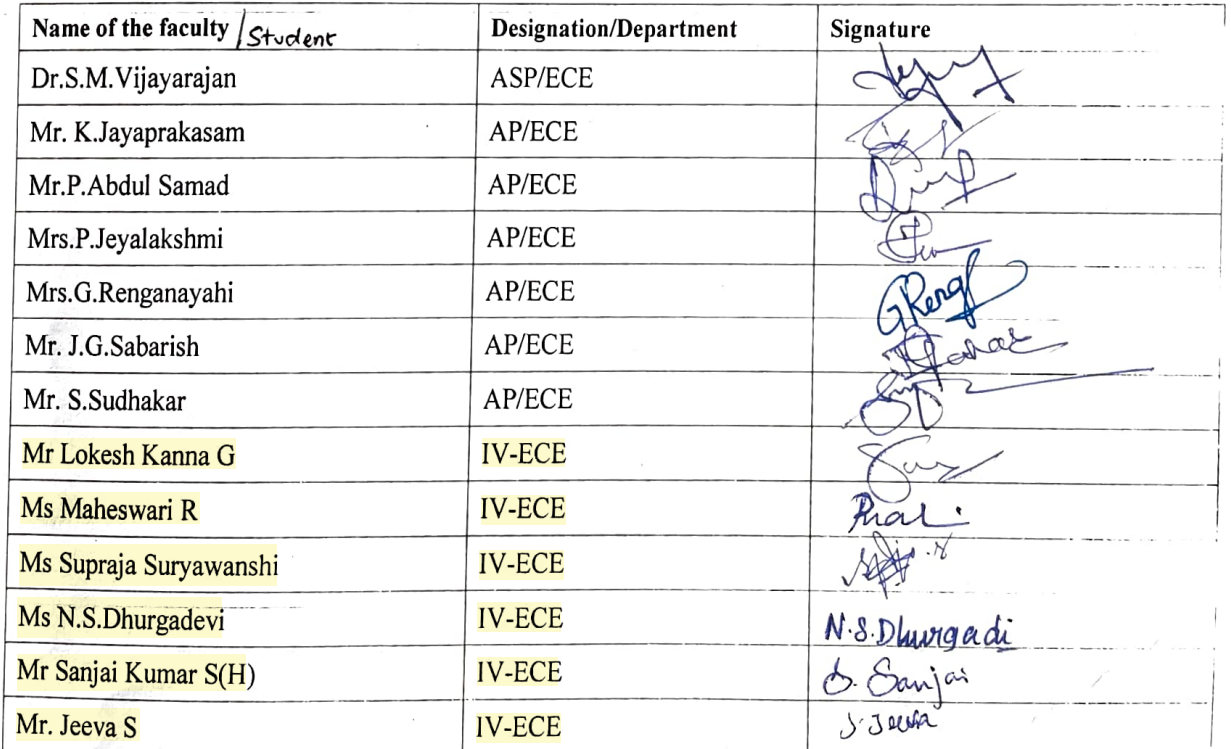 Name of the faculty /Student Designation/Department Signature
Dr.S.M.Vijayarajan ASP/ECE
Mr. K.Jayaprakasam AP/ECE
Mr.P.Abdul Samad AP/ECE
Mrs.P.Jeyalakshmi AP/ECE
Mrs.G.Renganayahi AP/ECE GReng
Mr. J.G.Sabarish AP/ECE
Mr. S.Sudhakar AP/ECE
Mr Lokesh Kanna G IV-ECE
Ms Maheswari R IV-ECE
Ms Supraja Suryawanshi IV-ECE
Ms N.S.Dhurgadevi IV-ECE N.S.Dhurgadi
Mr Sanjai Kumar S(H) IV-ECE S. Sanjai
Mr. Jeeva S IV-ECE S. Jeeva